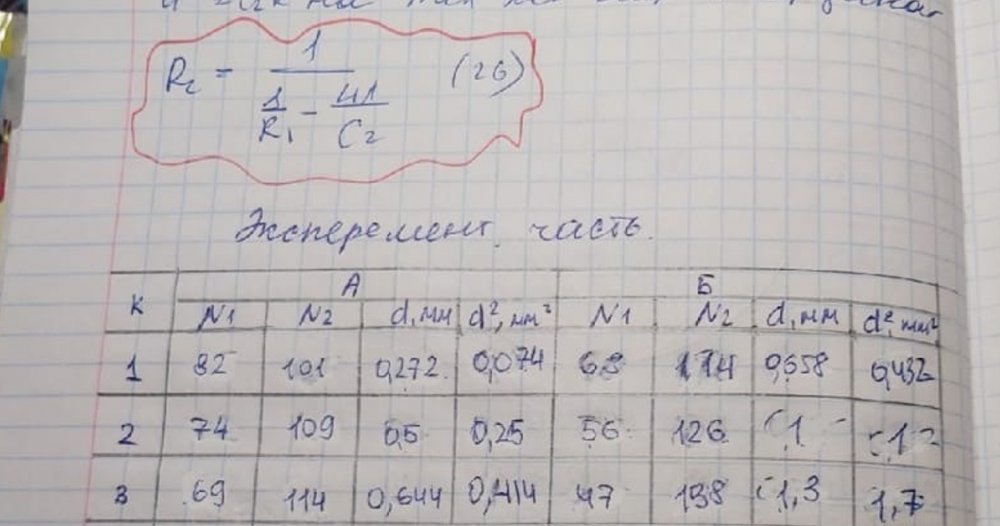 R₂ = 1 / (1/R₁ - 41/C₂) (26)
Эксперемент. часть.
К А Б
N1 N2 d,мм d²,мм² N1 N2 d,мм d²,мм²
1 82 101 0,272 0,074 68 114 0,658 0,432
2 74 109 0,5 0,25 56 126 1 1
3 69 114 0,644 0,414 47 138 1,3 1,7